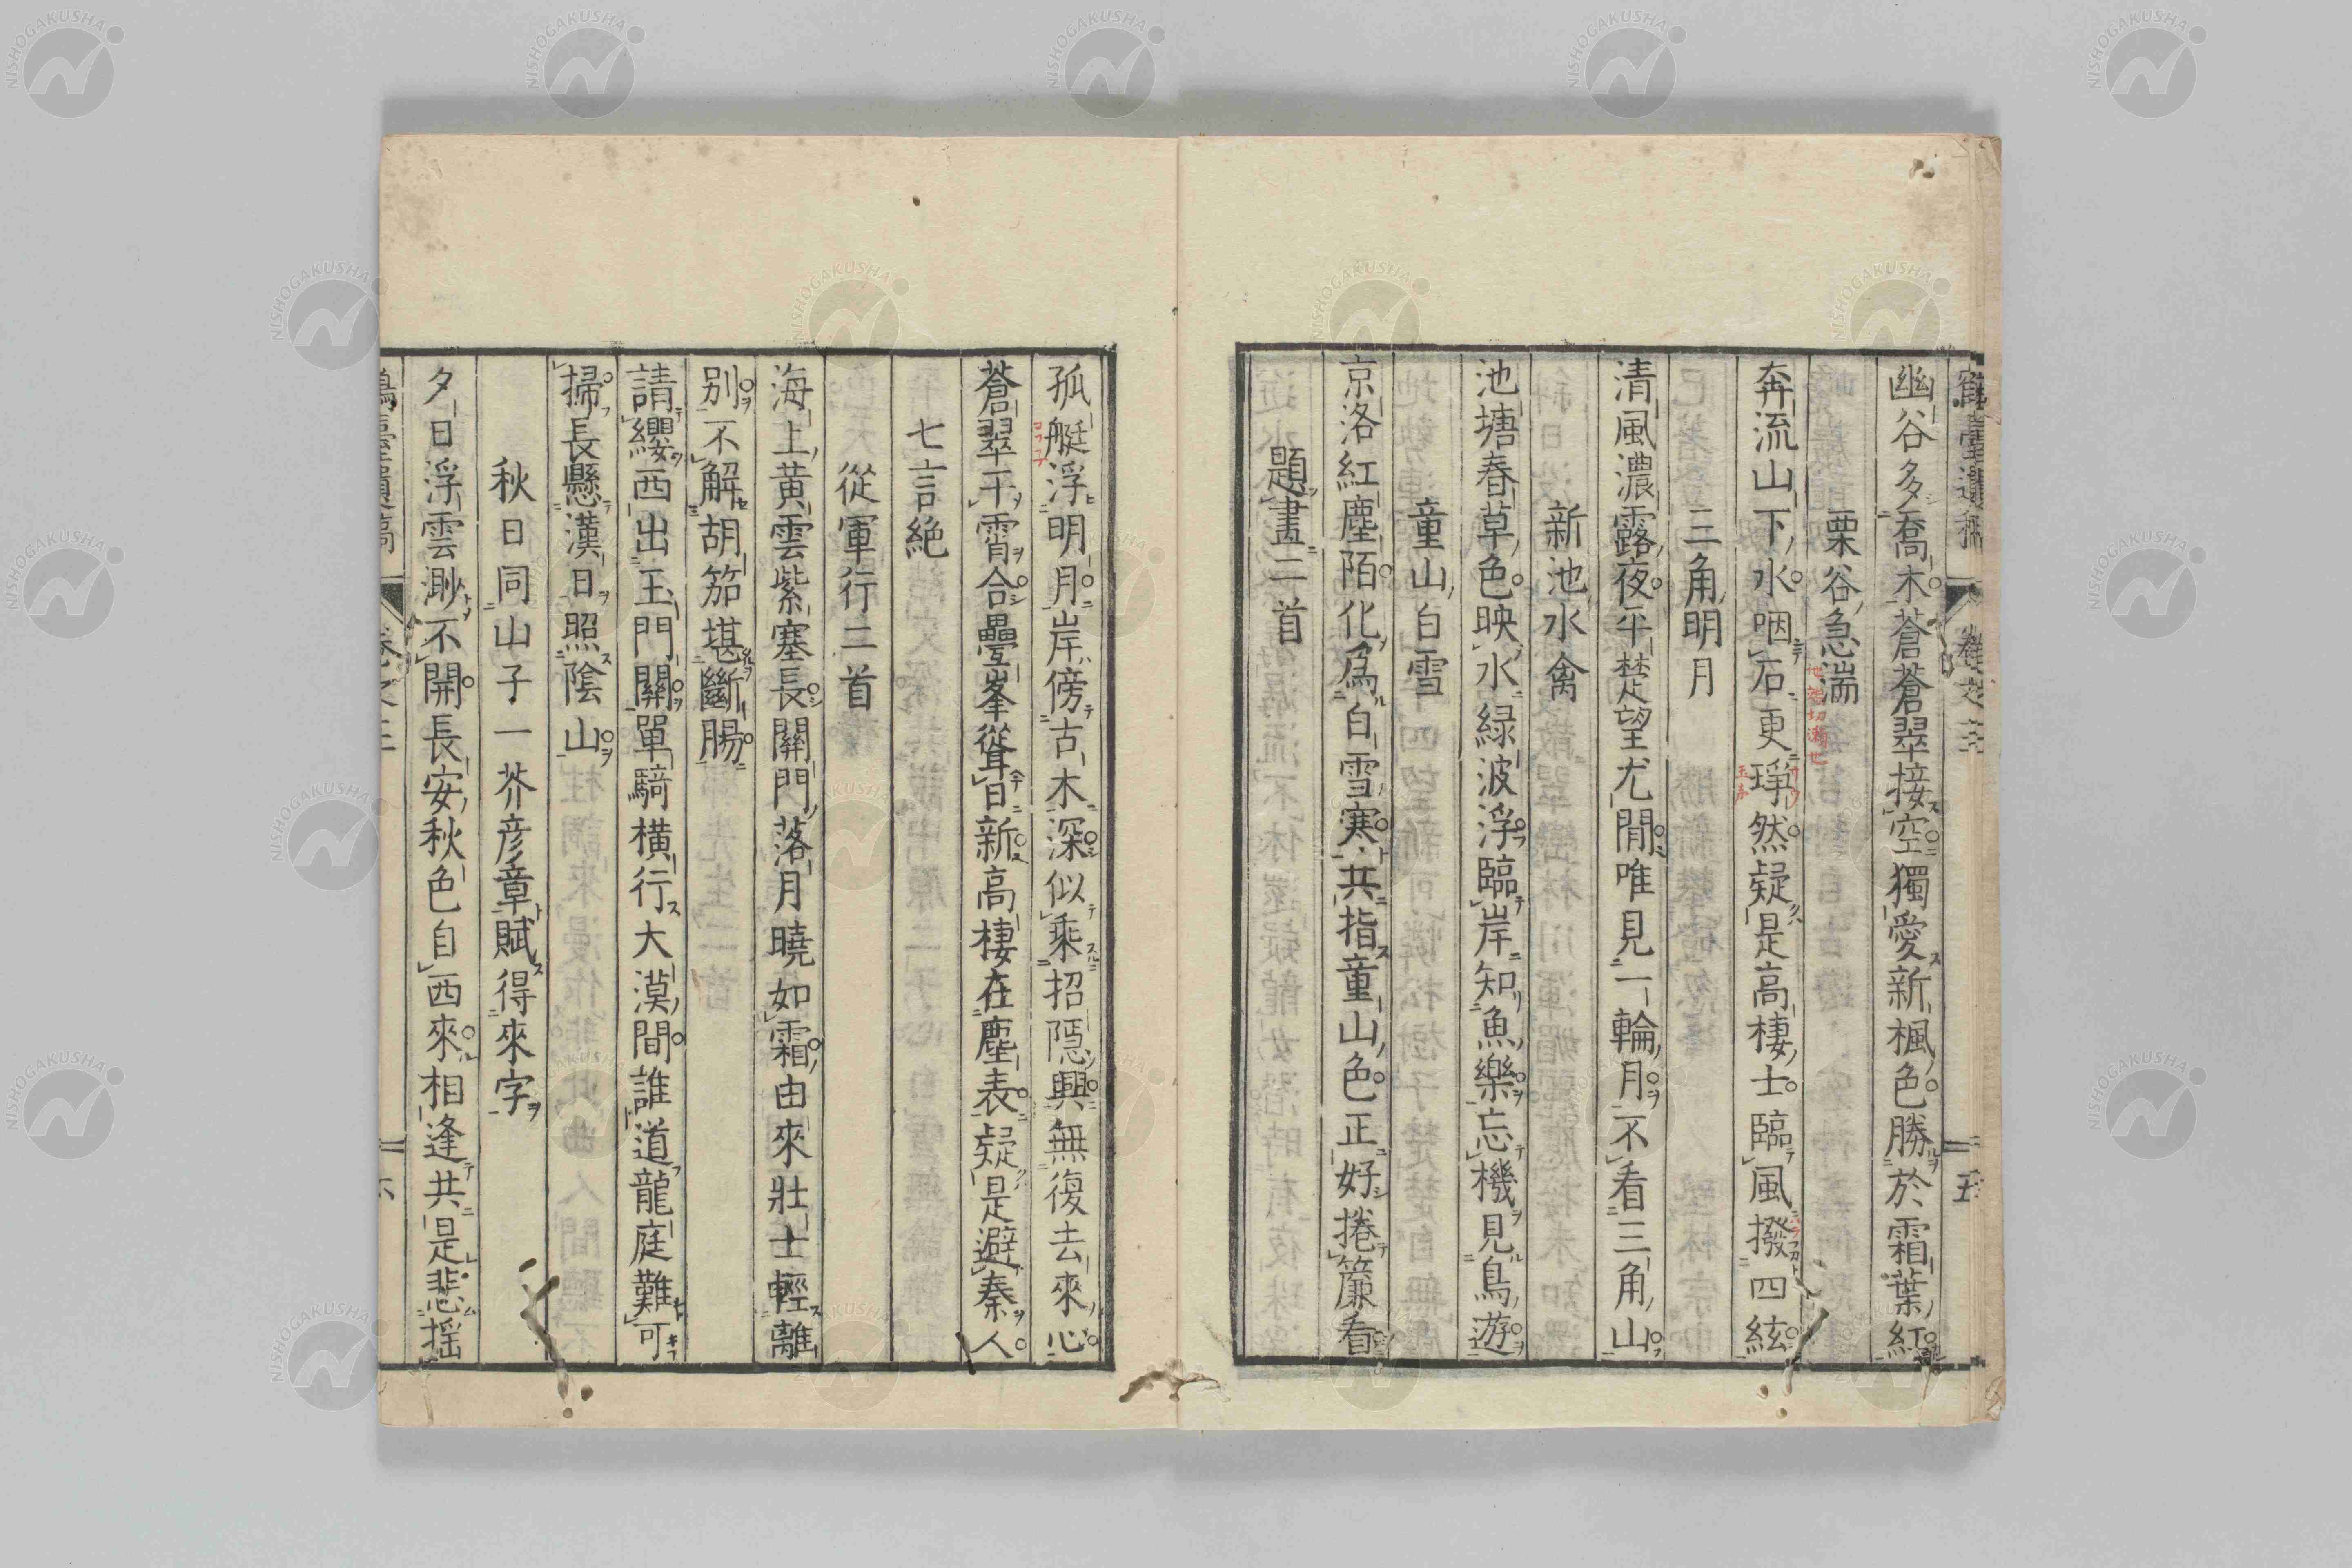 幽谷多喬木蒼蒼翠接空獨愛新楓色勝於霜葉紅
栗谷急湍
奔流山下水咽石更琤然疑是高棲士臨風撥四絃
三角明月
清風濃露夜平楚望尤閒唯見一輪月不看三角山
新池水禽
池塘春草色映水緑波浮臨岸知魚樂忘機見鳥遊
童山白雪
京洛紅塵陌化爲白雪寒共指童山色正好捲簾看
題畫二首
孤艇浮明月岸傍古木深似乘招隱興無復去來心
蒼翠平霄合疊峯從耸白新高棲在塵表疑是避秦人
七言絶
從軍行二首
海上黄雲紫塞長關門落月曉如霜由來壯士輕離
別不解胡笳堪斷腸
請纓西出玉門關單騎横行大漠間誰道龍庭難可
掃長懸漢日照陰山
秋日同山子一芥彦章賦得來字
夕日浮雲渺不開長安秋色自西來相逢共是悲揺
NISHOGAKUSHA